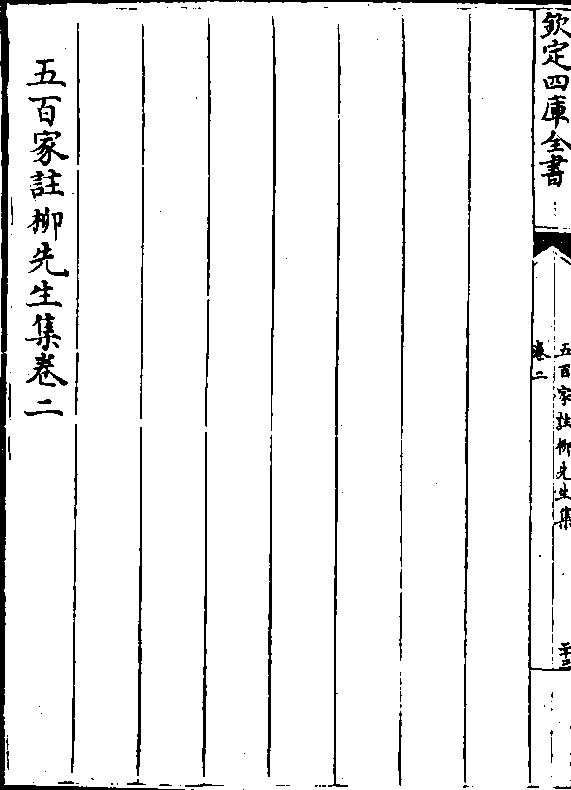 欽定四庫全書
五百家註柳先生集
卷二
二十三
五百家註柳先生集卷二